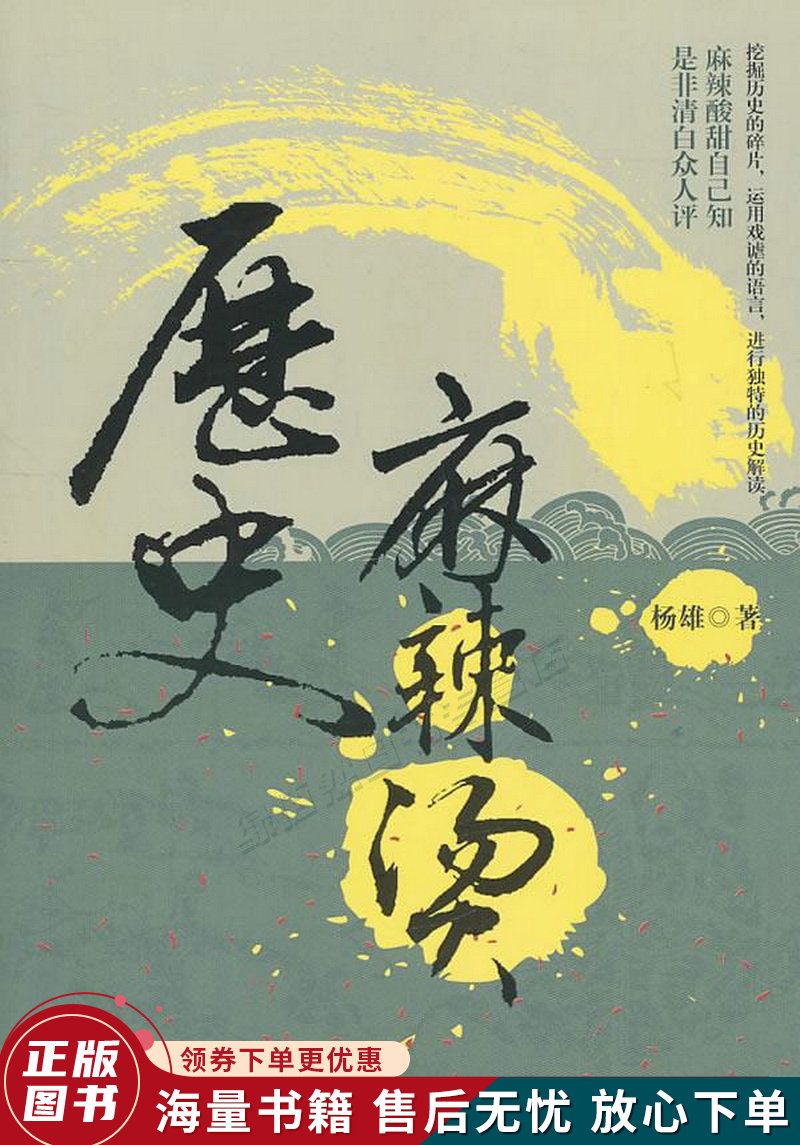 挖掘历史的碎片，运用戏谑的语言，进行独特的历史解读
麻辣酸甜自己知
是非清白众人评
歷史
麻辣烫
杨雄◎著
正版
图书
领券下单更优惠
海量书籍 售后无忧 放心下单